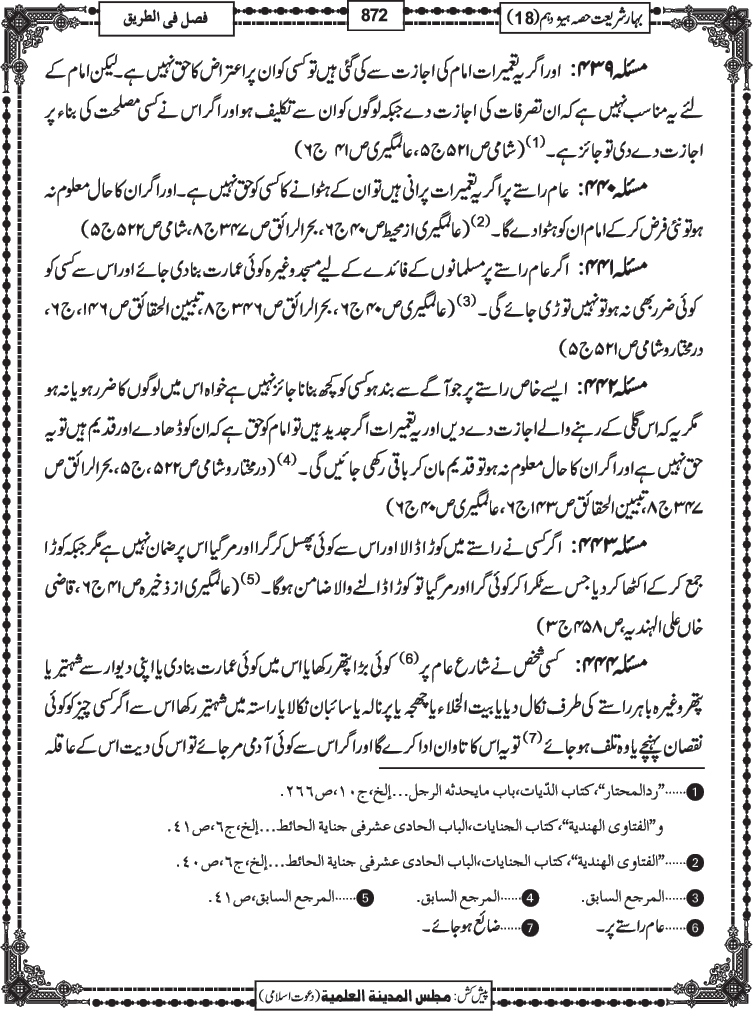 بہارِ شریعت حصہ ہیژدہم (18)
872
فصل فی الطریق
مسئلہ ۴۳۹: اور اگر یہ تعمیرات امام کی اجازت سے کی گئی ہیں تو کسی کو ان پر اعتراض کا حق نہیں ہے۔ لیکن امام کے
لئے یہ مناسب نہیں ہے کہ ان تصرفات کی اجازت دے جبکہ لوگوں کو ان سے تکلیف ہو اور اگر اس نے کسی مصلحت کی بناء پر
اجازت دے دی تو جائز ہے۔(1) (شامی ص۵۲۱ ج۵، عالمگیری ص۴۱ ج۶)
مسئلہ ۴۴۰: عام راستے پر اگر یہ تعمیرات پرانی ہیں تو ان کے ہٹوانے کا کسی کو حق نہیں ہے۔ اور اگر ان کا حال معلوم نہ
ہو تو نئی فرض کر کے امام ان کو ہٹوا دے گا۔(2) (عالمگیری از محیط ص۴۰ ج۶، بحر الرائق ص۳۴۷ ج۸، شامی ص۵۲۲ ج۵)
مسئلہ ۴۴۱: اگر عام راستے پر مسلمانوں کے فائدے کے لیے مسجد وغیرہ کوئی عمارت بنا دی جائے اور اس سے کسی کو
کوئی ضرر بھی نہ ہو تو نہیں توڑی جائے گی۔(3) (عالمگیری ص۴۰ ج۶، بحر الرائق ص۳۴۶ ج۸، تبیین الحقائق ص۱۴۶، ج۶،
درمختار و شامی ص۵۲۱ ج۵)
مسئلہ ۴۴۲: ایسے خاص راستے پر جو آگے سے بند ہو کسی کو کچھ بنانا جائز نہیں ہے خواہ اس میں لوگوں کا ضرر ہو یا نہ ہو
مگر یہ کہ اس گلی کے رہنے والے اجازت دے دیں اور یہ تعمیرات اگر جدید ہیں تو امام کو حق ہے کہ ان کو ڈھا دے اور قدیم ہیں تو یہ
حق نہیں ہے اور اگر ان کا حال معلوم نہ ہو تو قدیم مان کر باقی رکھی جائیں گی۔(4) (درمختار و شامی ص۵۲۲، ج۵، بحر الرائق ص
۳۴۷ ج۸، تبیین الحقائق ص۱۴۳ ج۶، عالمگیری ص۴۰ ج۶)
مسئلہ ۴۴۳: اگر کسی نے راستے میں کوڑا ڈالا اور اس سے کوئی پھسل کر گرا اور مر گیا اس پر ضمان نہیں ہے مگر جبکہ کوڑا
جمع کر کے اکٹھا کر دیا جس سے ٹکرا کر کوئی گرا اور مر گیا تو کوڑا ڈالنے والا ضامن ہوگا۔(5) (عالمگیری از ذخیرہ ص۴۱ ج۶، قاضی
خاں علی الہندیہ، ص۴۵۸ ج۳)
مسئلہ ۴۴۴: کسی شخص نے شارع عام پر(6) کوئی بڑا پتھر رکھا یا اس میں کوئی عمارت بنا دی یا اپنی دیوار سے شہتیر یا
پتھر وغیرہ باہر راستے کی طرف نکال دیا یا بیت الخلاء یا چھجہ یا پرنالہ یا سائبان نکالا یا راستہ میں شہتیر رکھا اس سے اگر کسی چیز کو کوئی
نقصان پہنچے یا وہ تلف ہو جائے(7) تو یہ اس کا تاوان ادا کرے گا اور اگر اس سے کوئی آدمی مر جائے تو اس کی دیت اس کے عاقلہ
1......"ردالمحتار"، کتاب الدّیات، باب مایحدثه الرجل...إلخ، ج۱۰، ص۲۶۶.
و "الفتاوی الهندیة"، کتاب الجنایات، الباب الحادی عشر فی جنایة الحائط...إلخ، ج۶، ص۴۱.
2......"الفتاوی الهندیة"، کتاب الجنایات، الباب الحادی عشر فی جنایة الحائط...إلخ، ج۶، ص۴۰.
3......المرجع السابق. 4......المرجع السابق. 5......المرجع السابق، ص۴۱.
6......عام راستے پر۔ 7......ضائع ہو جائے۔
پیش کش: مجلس المدینة العلمیة (دعوت اسلامی)